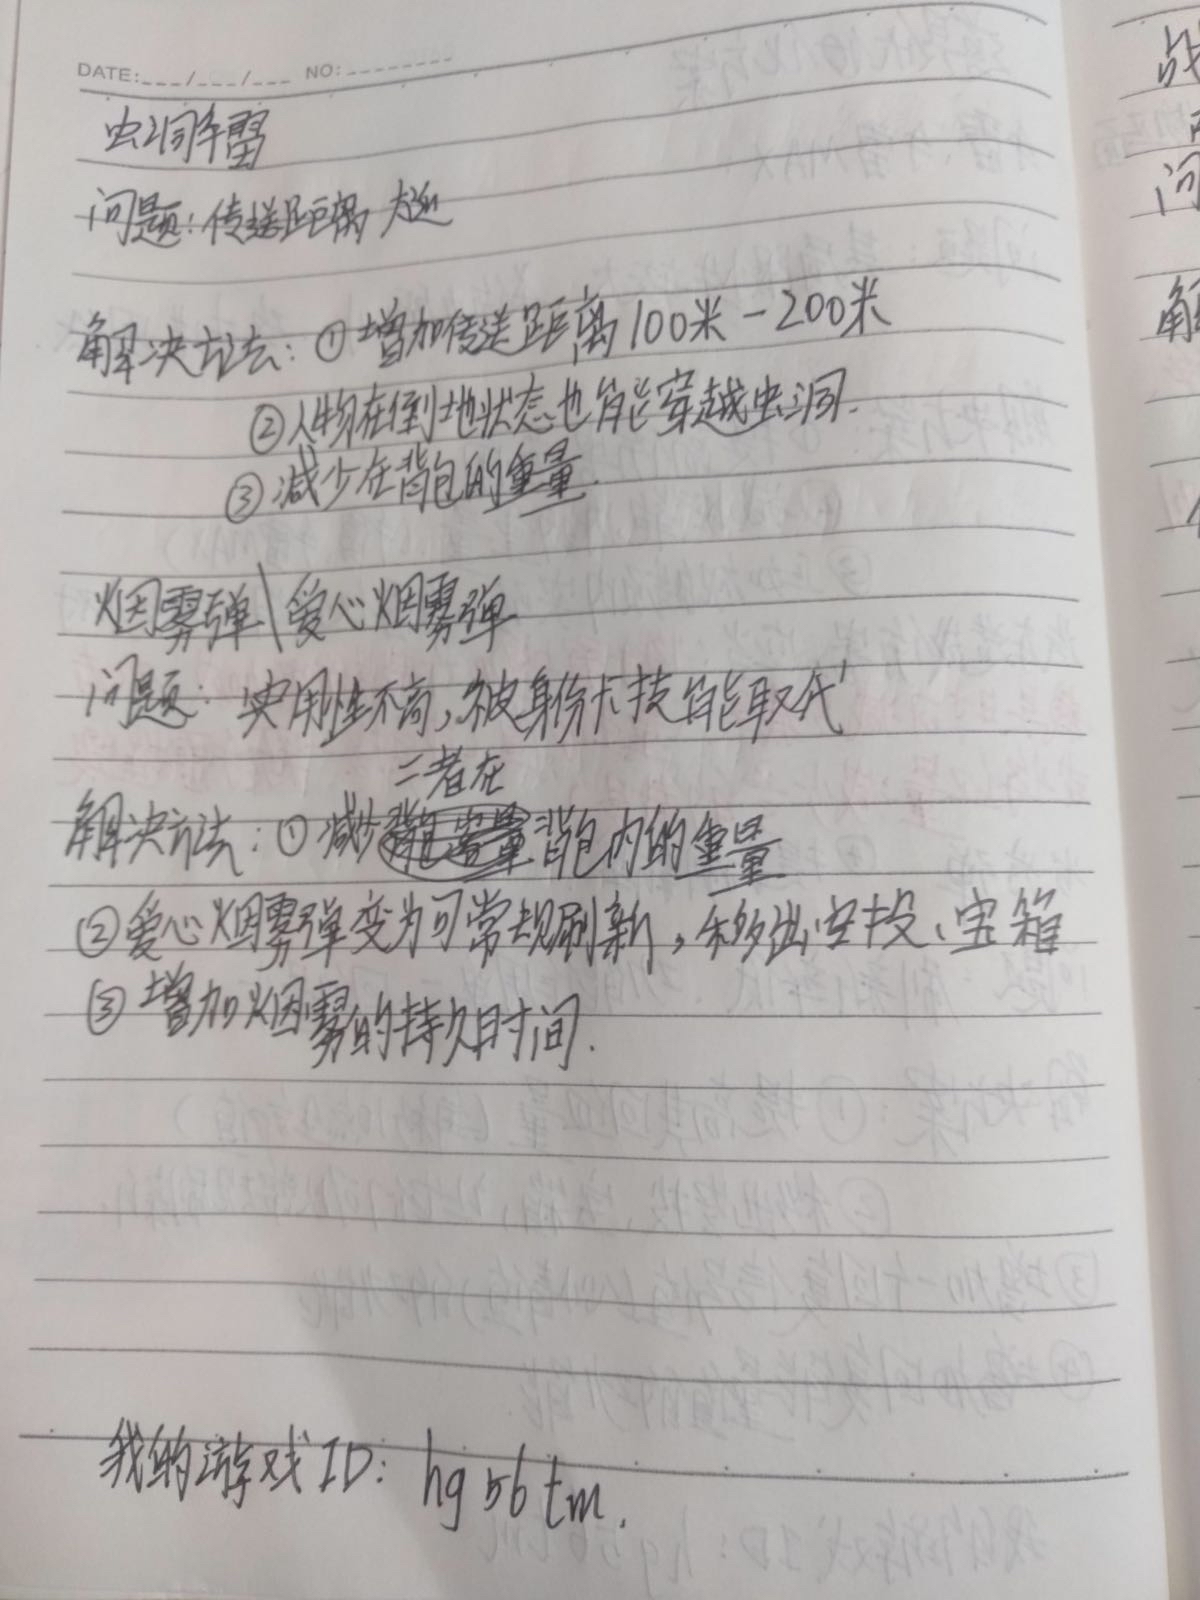 DATE:___/___/___ NO:________
虫洞手雷
问题：传送距离太近
解决方法：①增加传送距离100米-200米
②人物在倒地状态也能穿越虫洞.
③减少在背包的重量.
烟雾弹\爱心烟雾弹
问题：实用性不高，被身份卡技能取代
二者在
解决方法：①减少背包内的重量
②爱心烟雾弹变为可常规刷新，移出空投、宝箱
③增加烟雾的持久时间.
我的游戏ID：hg56tm.